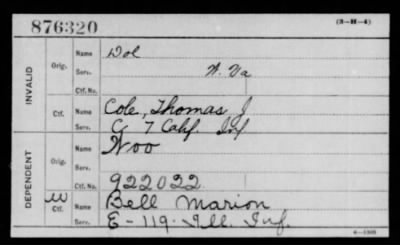 876320
(3-H-4)
INVALID
Orig.
Name Dol
Serv. W. Va
Ctf. No.
Ctf.
Name Cole, Thomas J.
Serv. G 7 Calif. Inf
DEPENDENT
Orig.
Name Woo
Serv.
Ctf. No. 922022
W
Ctf.
Name Bell Marion
Serv. E-119. Ill. Inf.